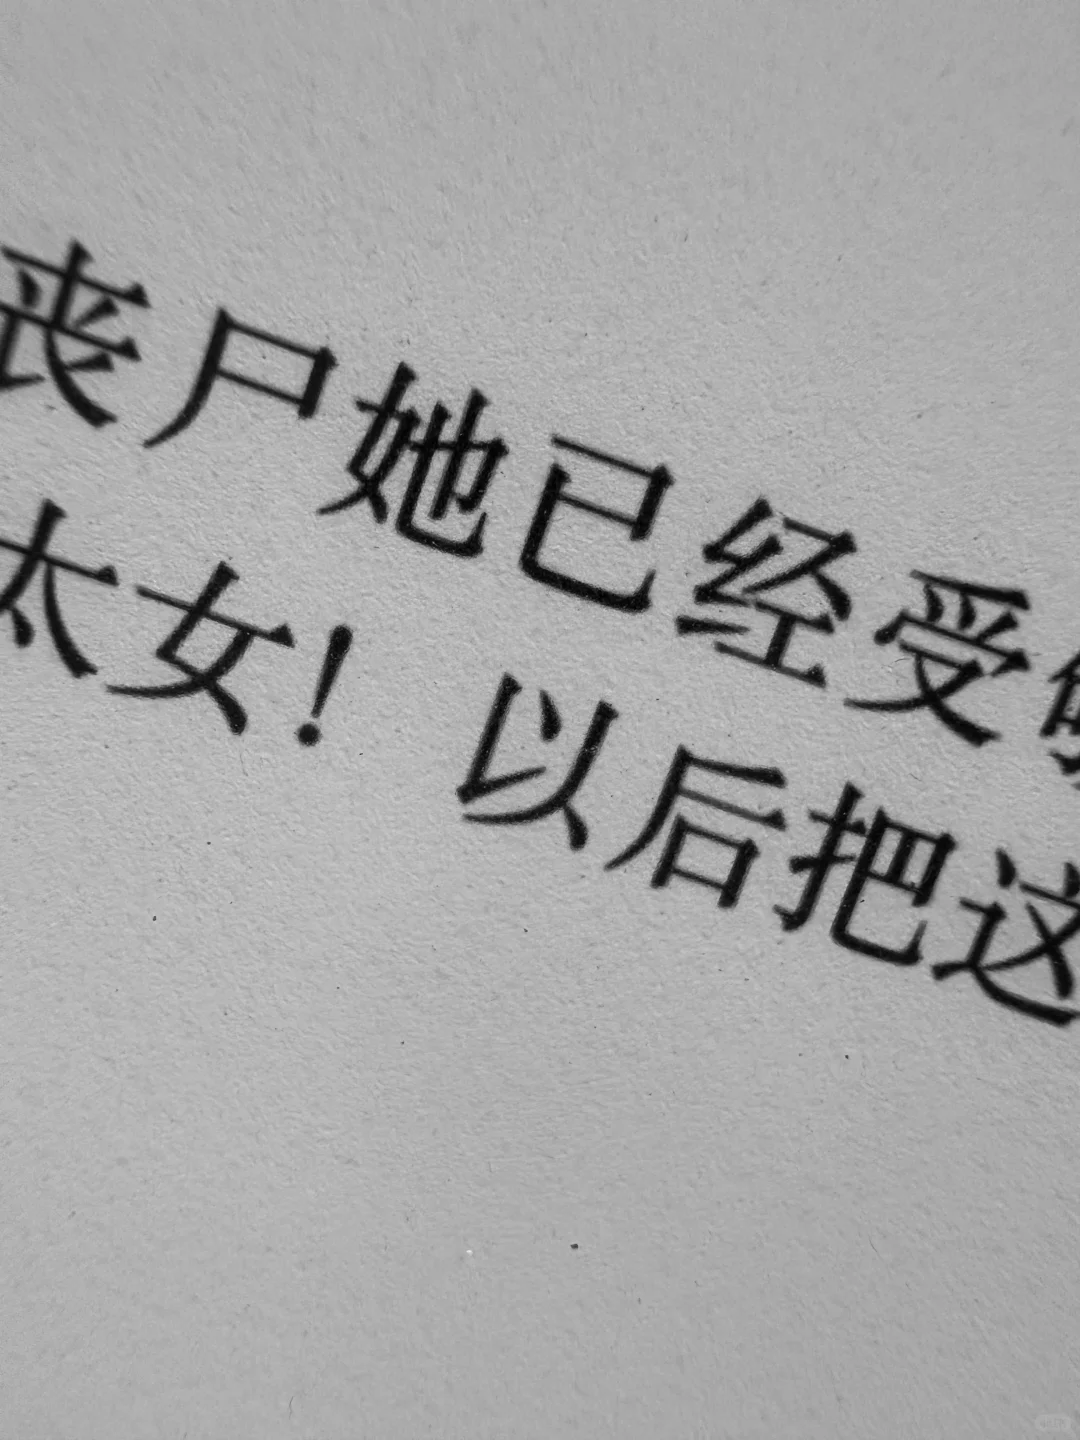 丧尸她已经受够
太女！以后把这